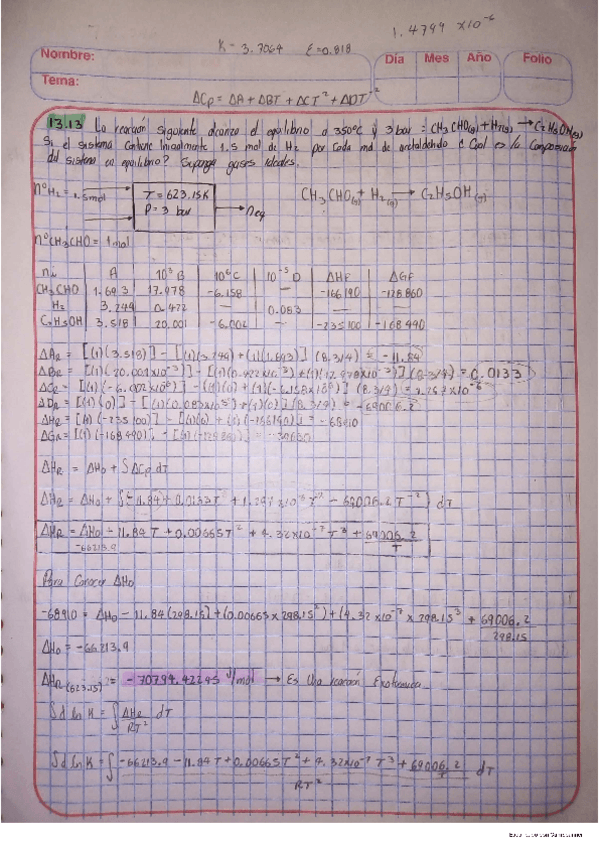 1.4799 x10⁻⁶
K = 3.7064 ε=0.818
Nombre: Día Mes Año Folio
Tema:
ΔCp = ΔA + ΔBT + ΔCT² + ΔDT⁻²
13.13 La reacción siguiente alcanza el equilibrio a 350°C y 3 bar = CH₃CHO(g) + H₂(g) → C₂H₅OH(g)
Si el sistema contiene Inicialmente 1.5 mol de H₂ por cada mol de acetaldehído ¿ Cual es la composición
del sistema en equilibrio? Suponga gases ideales.
n°H₂ = 1.5mol T = 623.15K CH₃CHO(g) + H₂(g) → C₂H₅OH(g)
P = 3 bar → neq
n°CH₃CHO = 1mol
ni A 10³B 10⁶C 10⁻⁵D ΔHF ΔGF
CH₃CHO 1.693 17.978 -6.158 — -166190 -128860
H₂ 3.249 0.422 — 0.083 — —
C₂H₅OH 3.518 20.001 -6.002 — -235100 -168490
ΔAR = [(1)(3.518)] - [(1)(3.249)+(1)(1.693)] (8.314) = -11.84
ΔBR = [(1)(20.001x10⁻³)] - [(1)(0.422x10⁻³)+(1)(17.978x10⁻³)] (8.314) = 0.0133
ΔCR = [(1)(-6.002x10⁻⁶)] - [(1)(0)+(1)(-6.158x10⁻⁶)] (8.314) = 1.297x10⁻⁶
ΔDR = [(1)(0)] - [(1)(0.083x10⁵)+(1)(0)] (8.314) = -69006.2
ΔHR = [(1)(-235100)] - [(1)(0)+(1)(-166190)] = -68910
ΔGR = [(1)(-168490)] - [(1)(-128860)] = -39630
ΔHR = ΔH₀ + ∫ΔCp dT
ΔHR = ΔH₀ + ∫(-11.84 + 0.0133T + 1.297x10⁻⁶T² - 69006.2 T⁻²) dT
ΔHR = ΔH₀ - 11.84T + 0.00665T² + 4.32x10⁻⁷T³ + 69006.2
-66213.9 T
Para Conocer ΔH₀
-68910 = ΔH₀ - 11.84(298.15) + (0.00665x298.15²) + (4.32x10⁻⁷ x 298.15³ + 69006.2
298.15
ΔH₀ = -66213.9
ΔHR(623.15) = -70794.42245 J/mol → Es Una reacción Exotermica
∫d ln K = ∫ ΔHR dT
RT²
∫d ln K = ∫ -66213.9 - 11.84T + 0.00665T² + 4.32x10⁻⁷T³ + 69006.2 dT
T
RT²